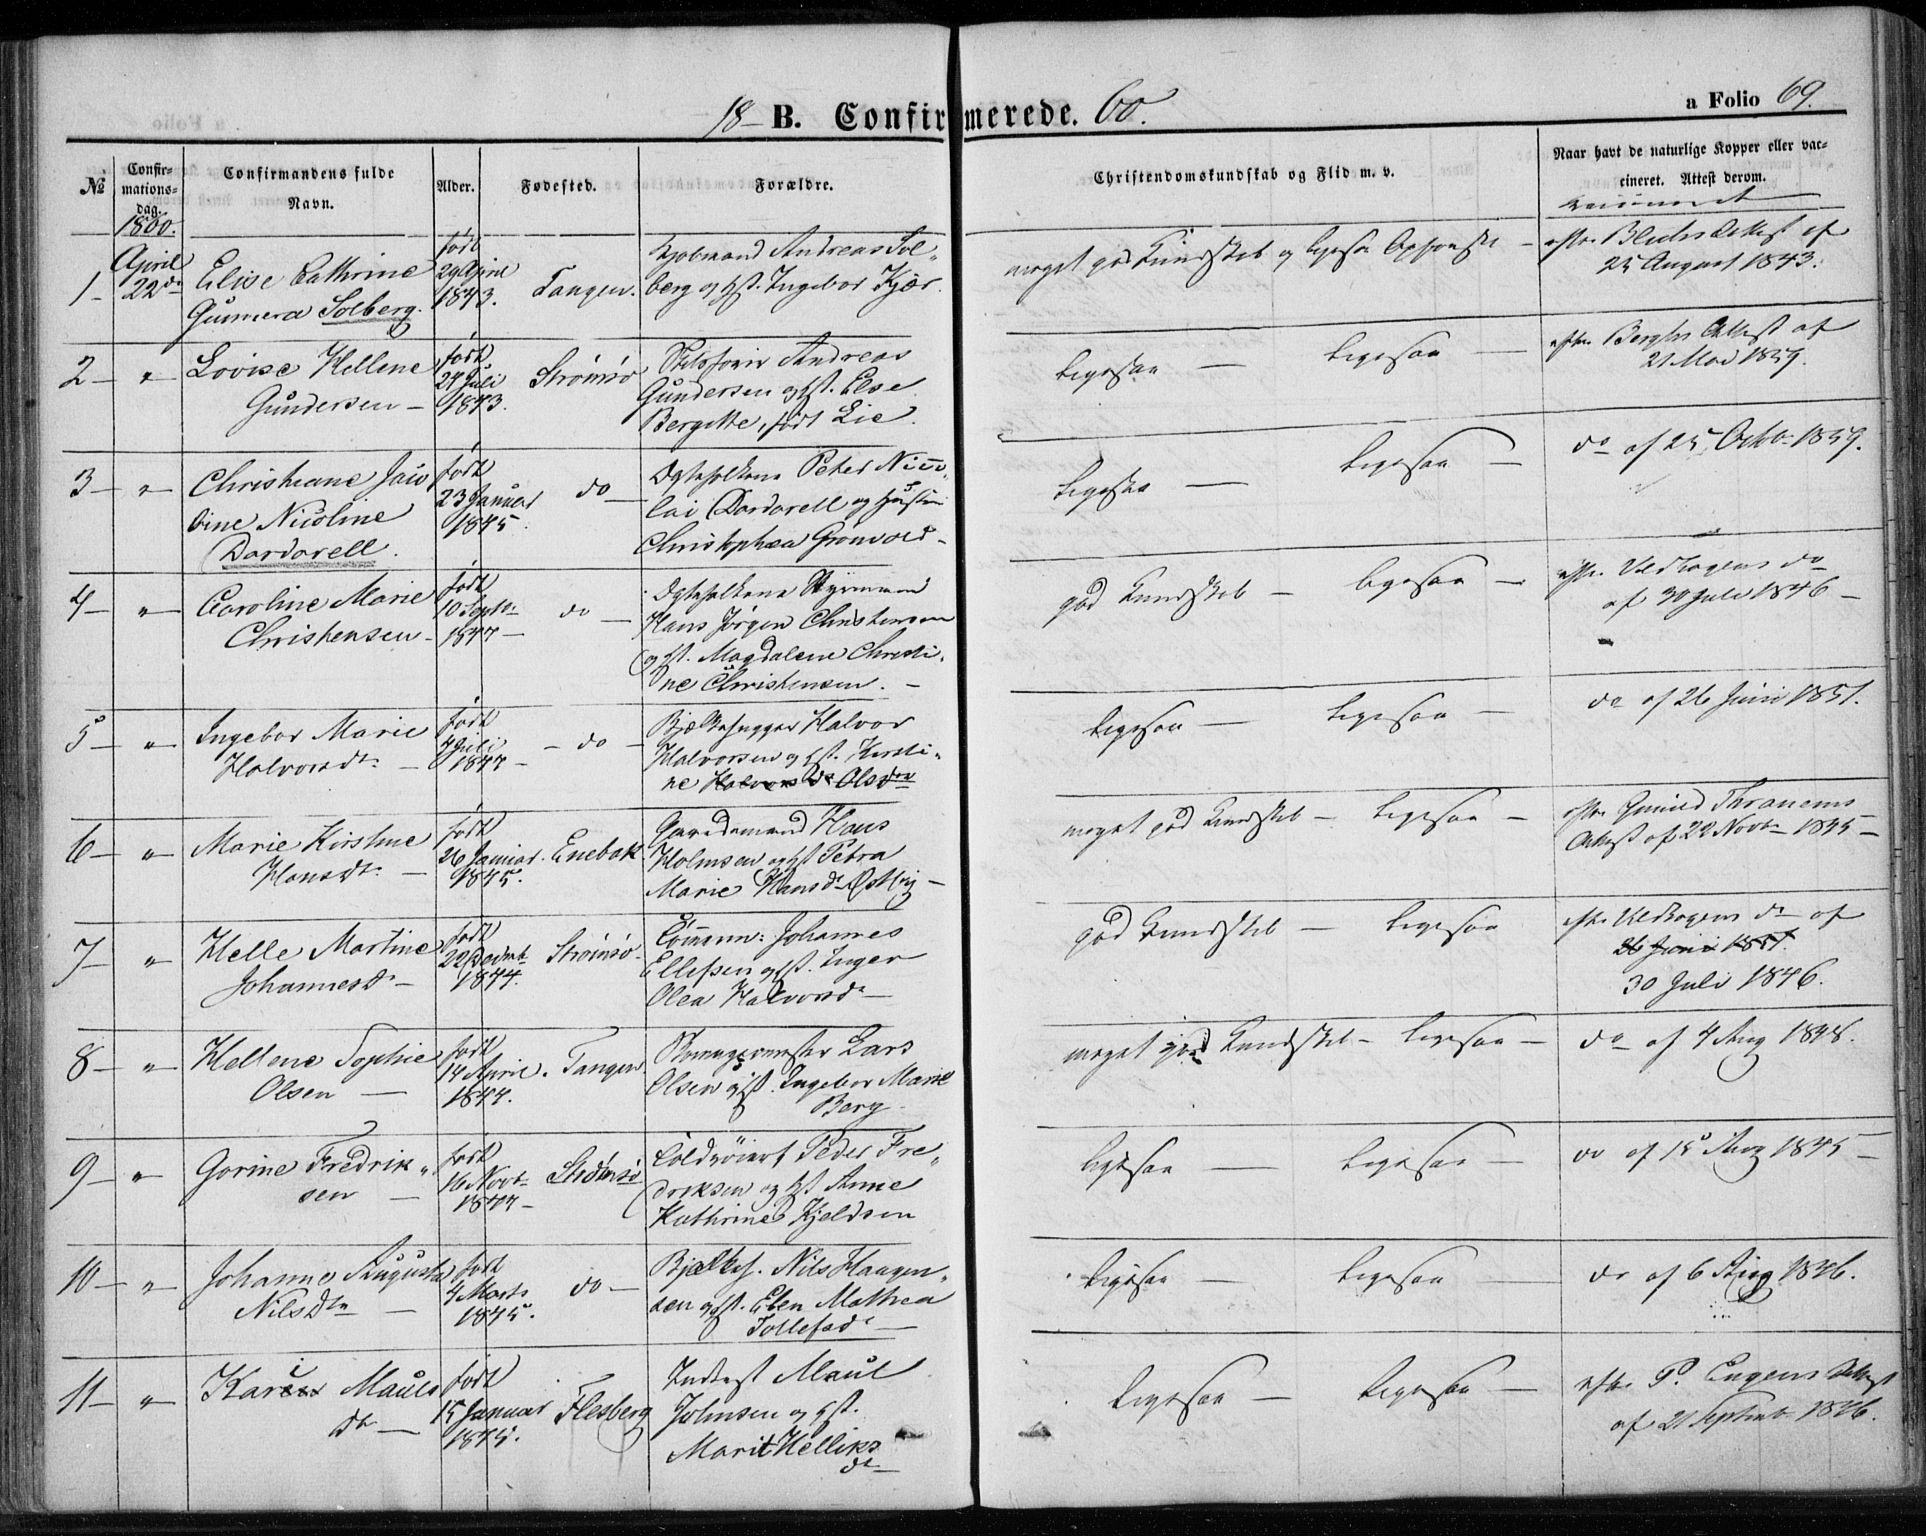 18- B. Confirmerede. 60.
a Folio 69.
No
Confir-
mations-
dag.
Confirmandens fulde
Navn.
Alder.
Fødested.
Forældre.
Christendomskundskab og Flid m. v.
Naar havt de naturlige Kopper eller vac-
cineret. Attest derom.
1860.
April
1- 22de
Elise Cathrine
Gunnera Solberg.
født
29 April
1843.
Tangen.
Andreas Sol-
berg og Hst. Ingebor Kjær.
meget god Kundskab og ligesaa Opførsel -
efter Blichs Attest af
25 August 1843.
2 - "
Lovise Hellene
Gundersen -
født
Juli
1843.
Strømsø
Andreas
Gundersen og Hst. Else
Bergitte, født Lie.
ligesaa - ligesaa -
efter Berghs Attest af
21 Mai 1859.
3 - "
Christiane Jaco
bine Nicoline
Dardarell.
født
23 Januar
1845.
do -
Ægtefolkene Peter Nico-
lai Dardarell og Hustru
Christophea Grønvold -
ligesaa - ligesaa -
do af 25 Octb. 1859.
4 - "
Caroline Marie
Christensen -
født
10 Septbr
1844 -
do -
Ægtefolkene Styrmand
Hans Jørgen Christensen
og Hst. Magdalene Christi-
ne Christensen. -
god Kundskab - ligesaa -
efter Vedhogens do
af 30 Juli 1846 -
5 - "
Ingebor Marie
Halvorsdtr -
født
4 Juli
1844 -
- do -
Bjælkehugger Halvor
Halvorsen og Hst. Kirsti-
ne Halvorsdr Olsdtr
ligesaa - ligesaa -
do af 26 Juni 1851.
6 - "
Marie Kirstine
Hansdtr -
født
26 Januar
1845.
Enebak
Gaardmand Hans
Holmsen og Hst Petra
Marie Hansdr Østbÿ -
meget god Kundskab - ligesaa -
efter Gunild Thranems
Attest af 22 Novbr 1845 -
7 - "
Helle Martine
Johannesdr -
født
22
1844.
Strømsø -
Johannes
Ellefsen og Hst. Inger
Olea Halvorsdr -
god Kundskab - ligesaa
efter Vedhogens do af
26 Juni 1851.
30 Juli 1846.
8 - "
Hellene Sophie
Olsen -
født
14 April
1844.
Tangen
Lars
Olsen og Hst. Ingebor Marie
Berg -
meget god Kundskab - ligesaa -
do af 4 Aug 1848.
9 - "
Gorine Fredrik-
sen -
født
16 Novbr
1844 -
Strømsø
Peder Fre-
driksen og Hst Anne
Kathrine Kjeldsen
ligesaa - ligesaa -
do af 15 Aug 1845 -
10 - "
Johanne Augusta
Nilsdtr -
født
4 Marts
1845.
do -
Bjælkeh. Nils Haagen-
sen og Hst. Elen Mathea
Tollefsdr -
ligesaa - ligesaa -
do af 6 Aug 1846.
11 - "
Kari Mauls
dtr -
født
15 Januar
1845.
Flesberg
Inderst Maul
Johnsen og Hst.
Marit Helliks
dr -
ligesaa - ligesaa -
efter P. Eugens Attest
af 21 Septemb. 1846.